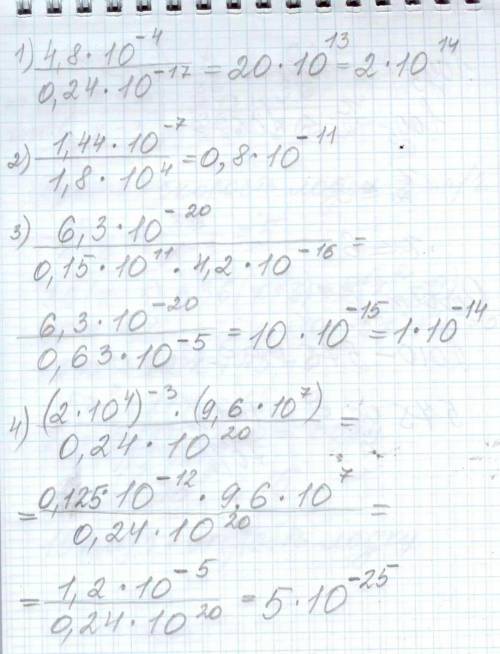 1) 4,8·10⁻⁴ / 0,24·10⁻¹⁷ = 20·10¹³ = 2·10¹⁴
2) 1,44·10⁻⁷ / 1,8·10⁴ = 0,8·10⁻¹¹
3) 6,3·10⁻²⁰ / 0,15·10¹¹·4,2·10⁻¹⁶ =
6,3·10⁻²⁰ / 0,63·10⁻⁵ = 10·10⁻¹⁵ = 1·10⁻¹⁴
4) (2·10⁴)⁻³·(9,6·10⁷) / 0,24·10²⁰ =
= 0,125·10⁻¹²·9,6·10⁷ / 0,24·10²⁰ =
= 1,2·10⁻⁵ / 0,24·10²⁰ = 5·10⁻²⁵